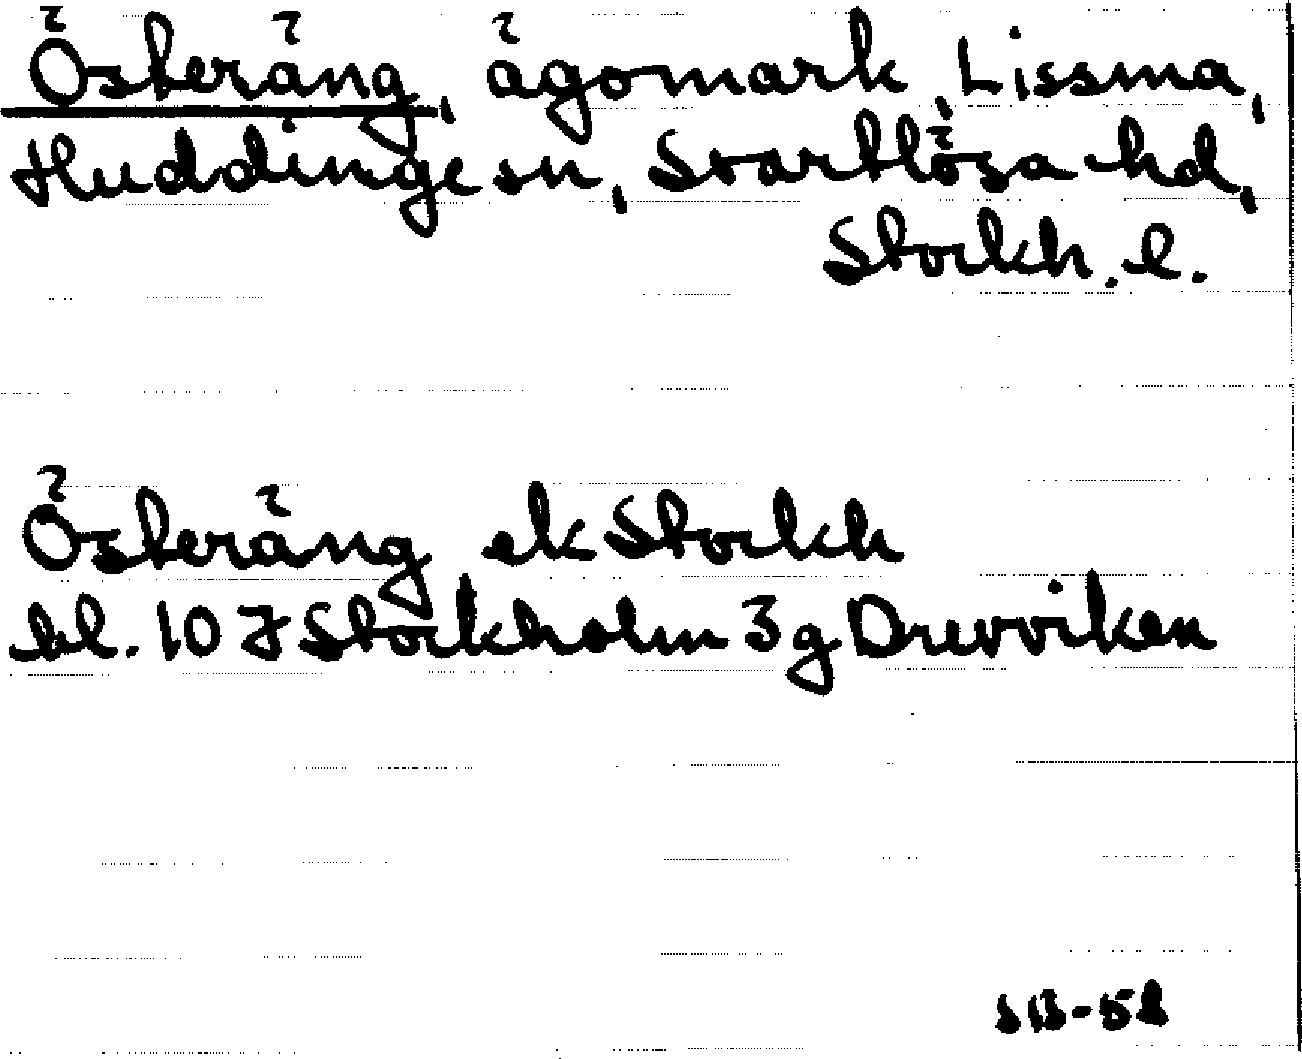 Österäng, ägomark, Lissma,
Huddinge sn, Svartlösa hd,
Stockh. l.
Österäng ek Stockh
bl. 10 J Stockholm 3g Drevviken